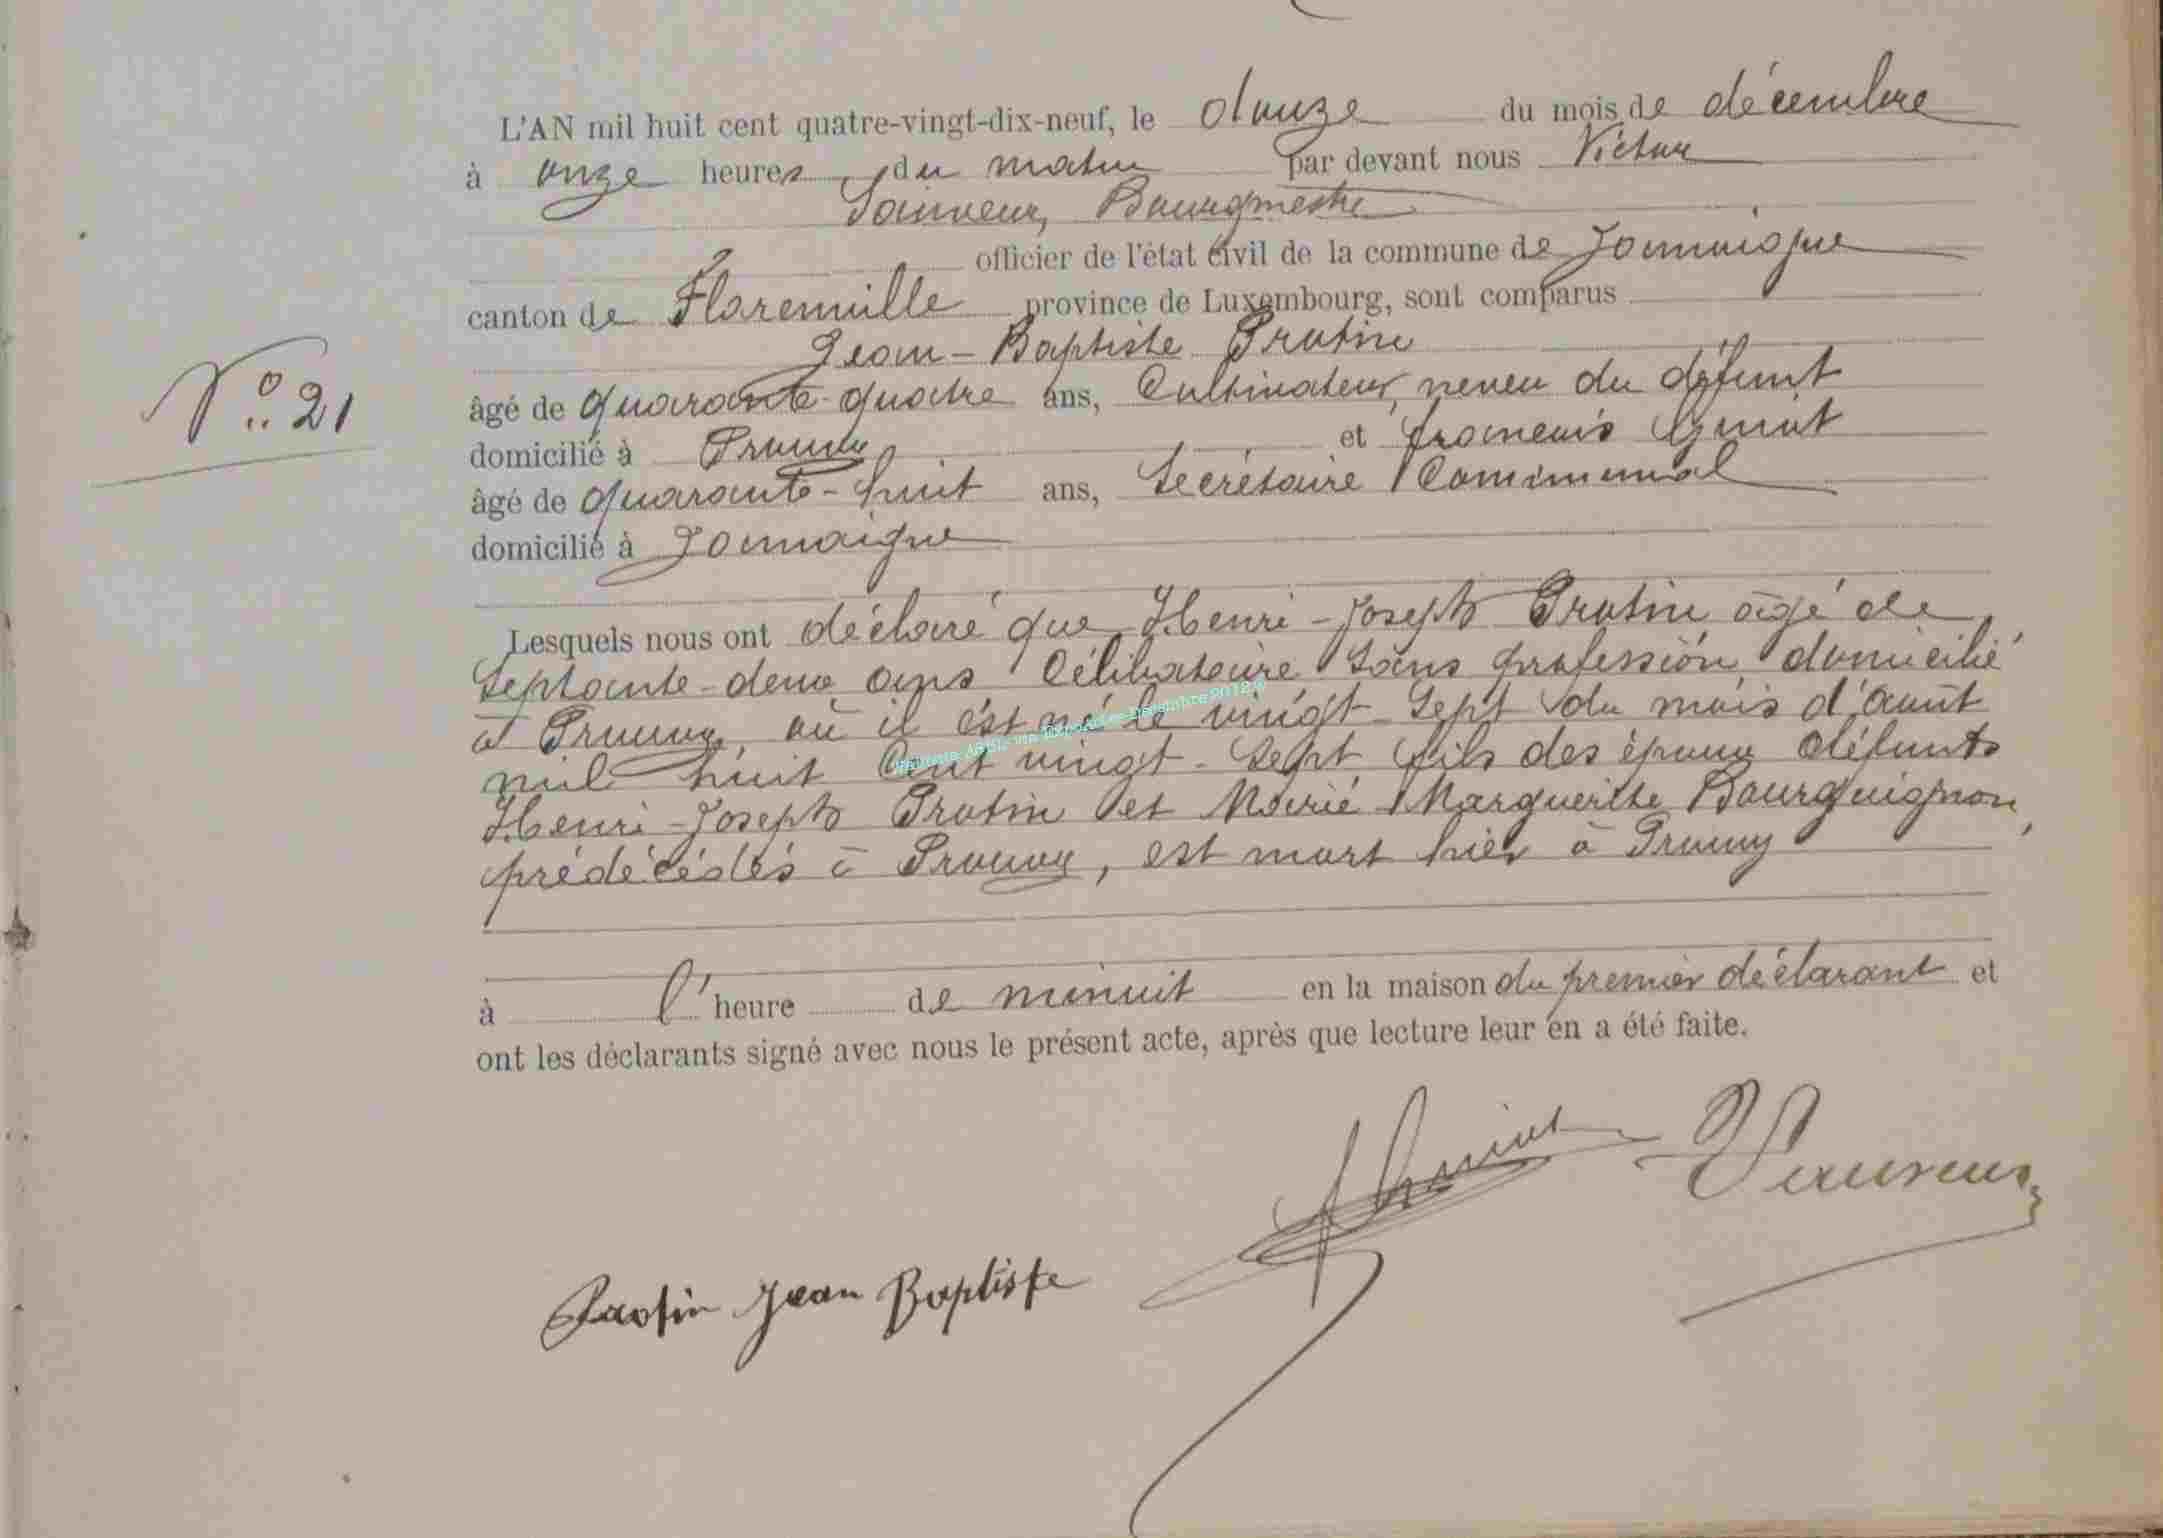 L'AN mil huit cent quatre-vingt-dix-neuf, le douze du mois de décembre
à onze heures du matin par devant nous Victor
Sauveur, Bourgmestre
officier de l'état civil de la commune de Jamoigne
canton de Florenville province de Luxembourg, sont comparus
Jean-Baptiste Protin
âgé de quarante-quatre ans, Cultivateur, neveu du défunt
N° 21
domicilié à Prouvy et françois
âgé de quarante-huit ans, Secrétaire Communal
domicilié à Jamoigne
Lesquels nous ont déclaré que Henri-Joseph Protin âgé de
septante-deux ans Célibataire sans profession, domicilié
à Prouvy, où il est né le vingt-sept du mois d'août
mil huit cent vingt-sept fils des époux défunts
Henri-Joseph Protin et Marie Marguerite Bourguignon,
prédécédés à Prouvy, est mort hier à Prouvy
à l'heure de minuit en la maison du premier déclarant et
ont les déclarants signé avec nous le présent acte, après que lecture leur en a été faite.
Sauveur
Protin Jean Baptiste